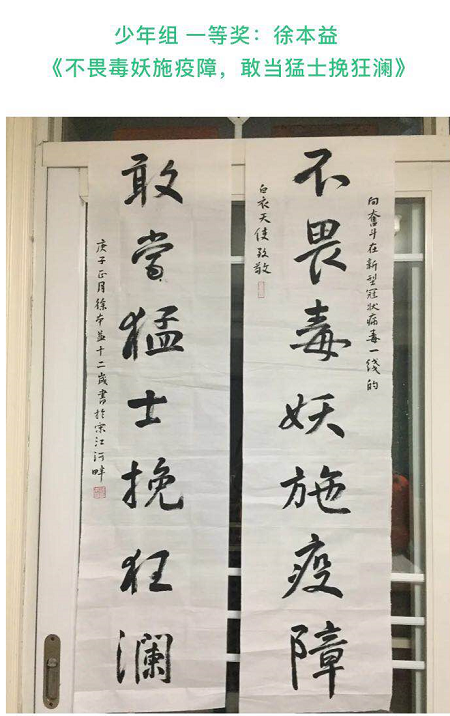 少年组 一等奖：徐本益
《不畏毒妖施疫障，敢当猛士挽狂澜》
向奋斗在新型冠状病毒一线的
不畏毒妖施疫障
白衣天使致敬
敢當猛士挽狂澜
庚子正月徐本益十二歲書於宗江河畔